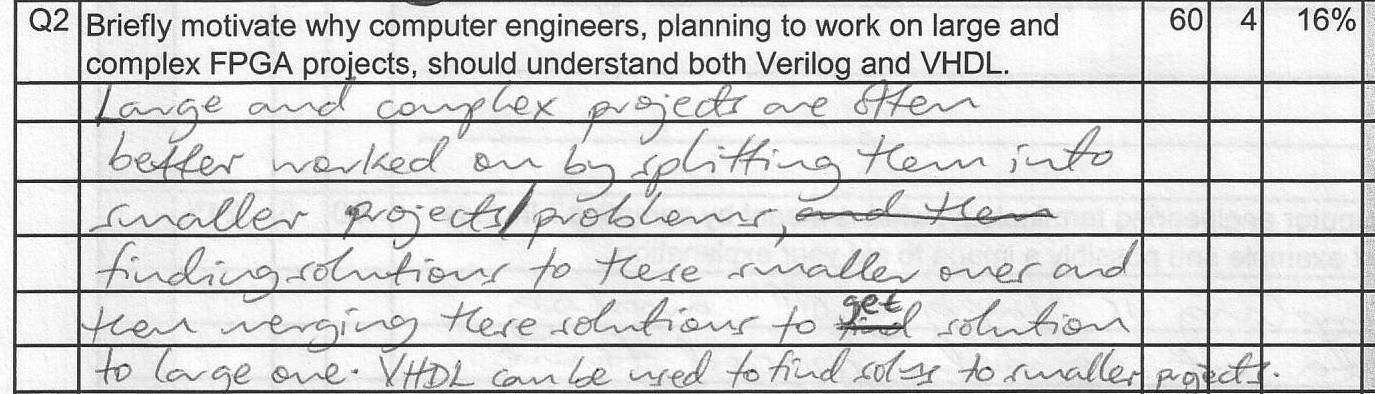 Q2 Briefly motivate why computer engineers, planning to work on large and 60 4 16%
complex FPGA projects, should understand both Verilog and VHDL.
Large and complex projects are often
better worked on by splitting them into
smaller projects/problems, and then
finding solutions to these smaller ones and
then merging these solutions to find get solution
to large one. VHDL can be used to find solns to smaller projects.